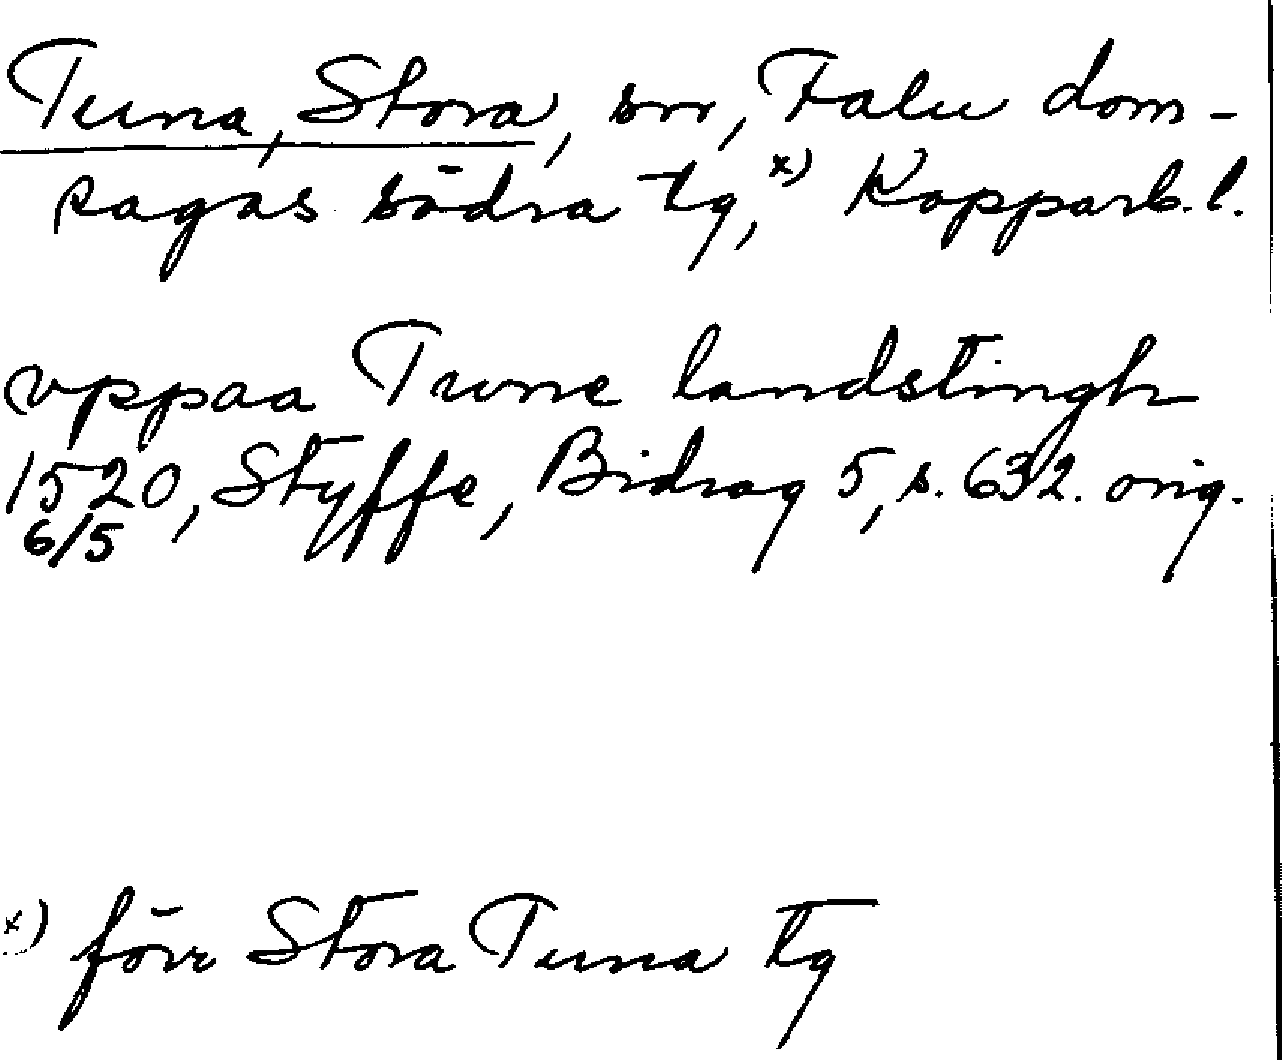 Tuna, Stora, sn, Falu dom-
sagas södra tg,x) Kopparb.l.
vppaa Twne landstingh
1520, Styffe, Bidrag 5, s. 632. orig.
6/5
x) förr Stora Tuna tg